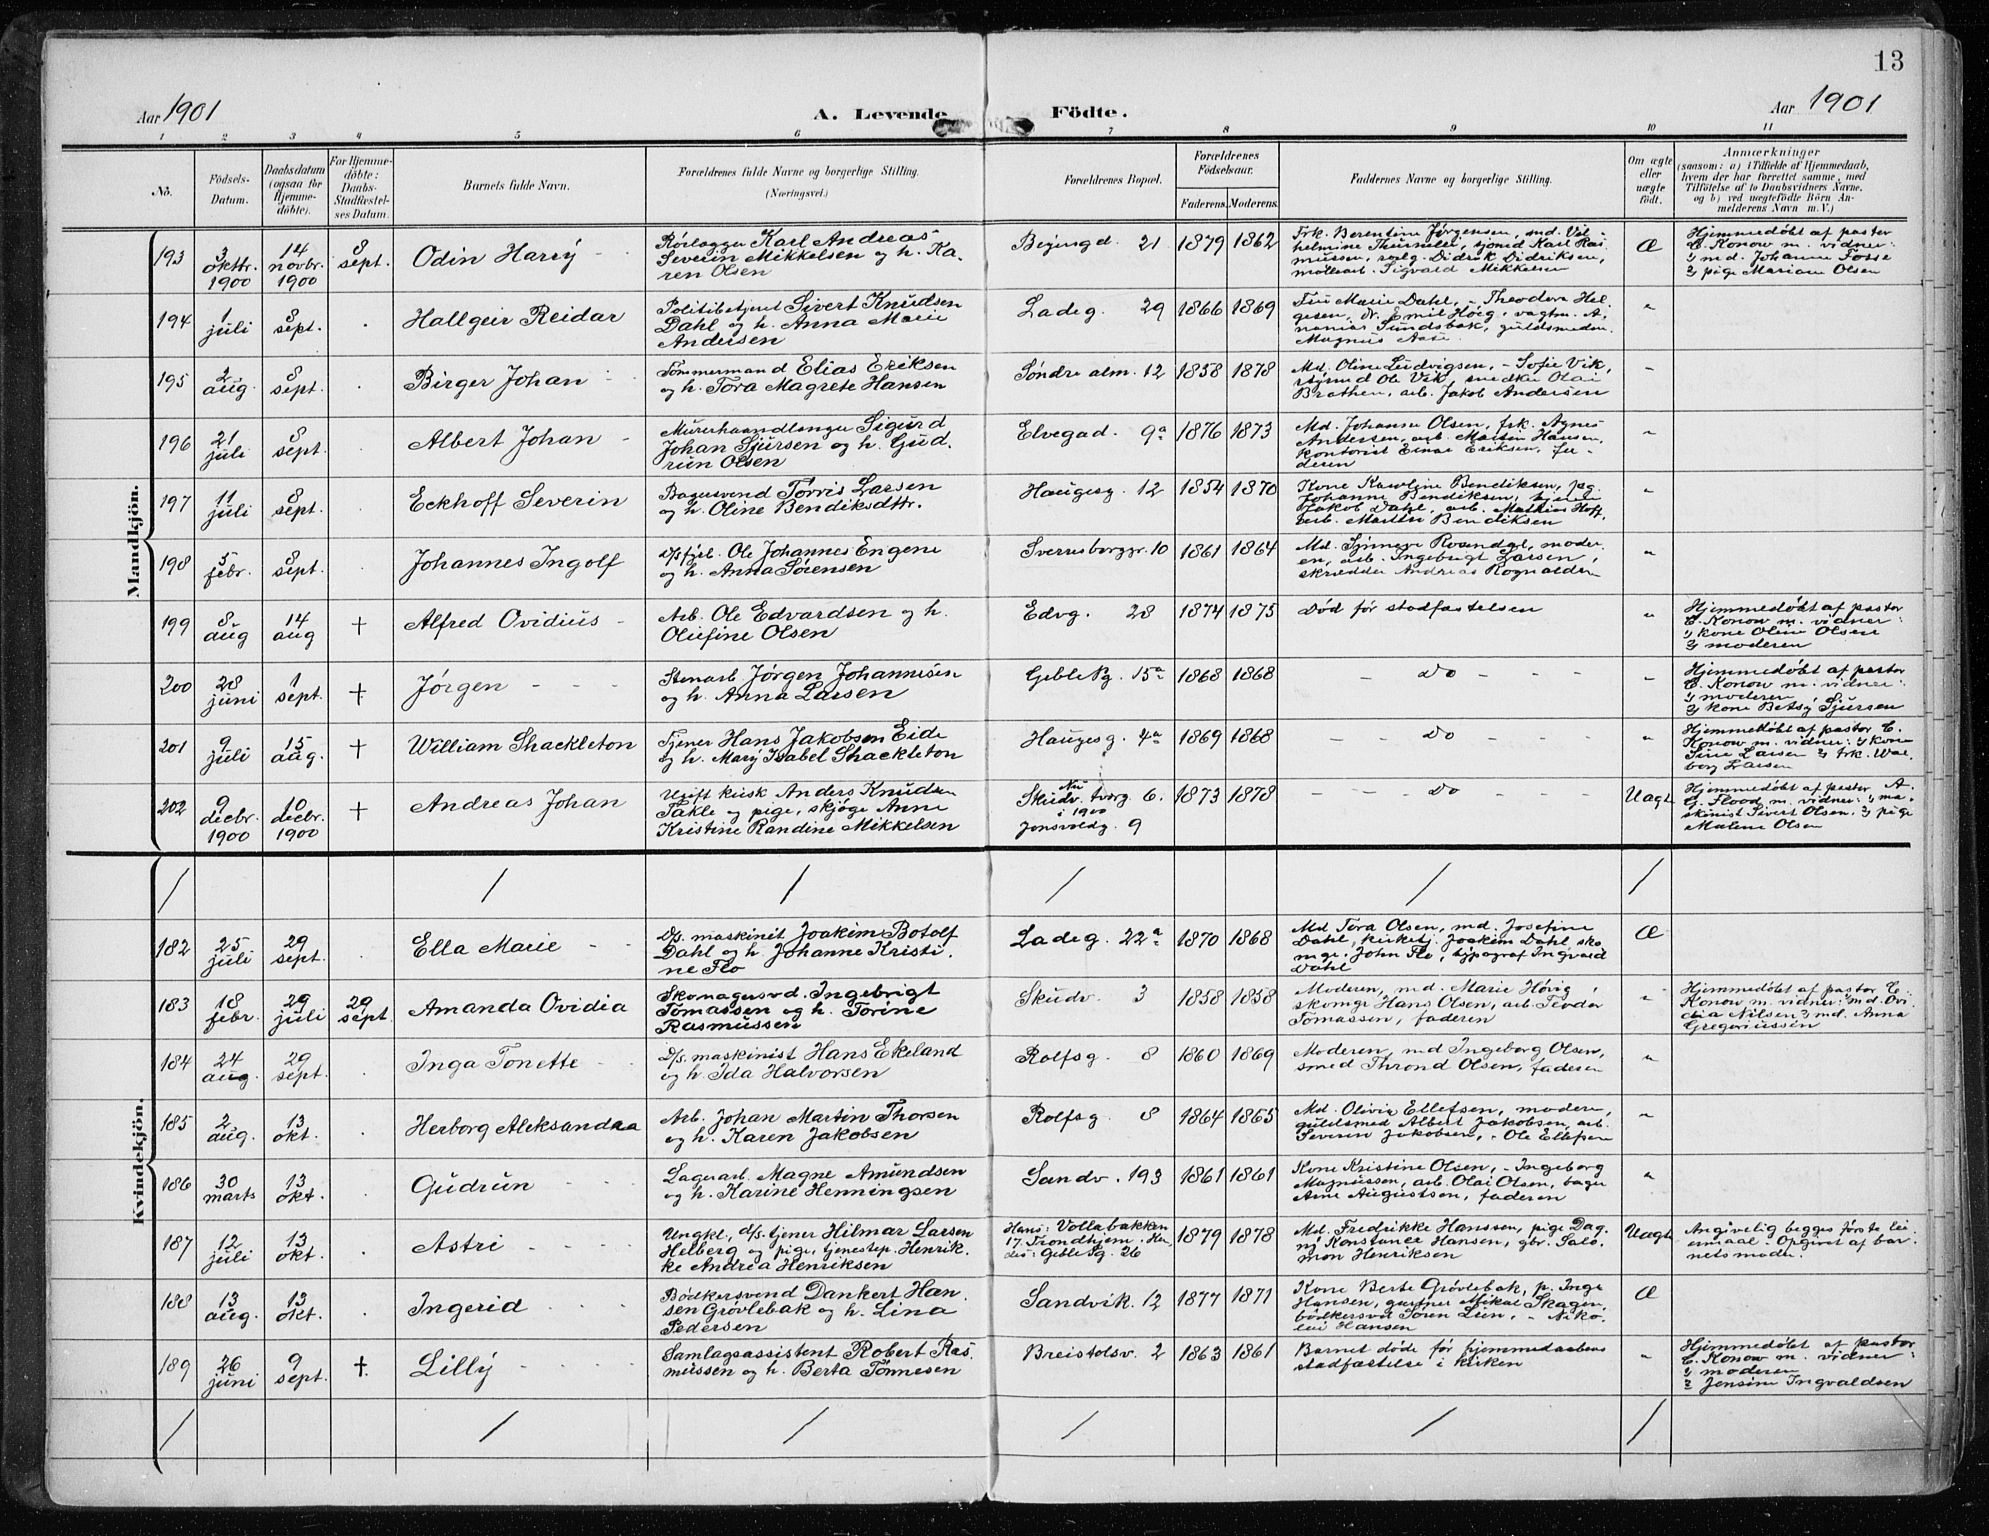 13
Aar 1901
A. Levende Födte.
Aar 1901
1 2 3 4 5 6 7 8 9 10 11
No.
Födsels-
Datum.
Daabsdatum
(ogsaa for
Hjemme-
döbte).
For Hjemme-
döbte:
Daabs-
Stadfæstel-
ses Datum.
Barnets fulde Navn.
Forældrenes fulde Navne og borgerlige Stilling.
(Næringsvei.)
Forældrenes Bopæl.
Forældrenes
Födselsaar.
Faderens. Moderens.
Faddernes Navne og borgerlige Stilling.
Om ægte
eller
uægte
födt.
Anmærkninger
(saasom: a) i Tilfælde af Hjemmedaab,
hvem der har forrettet samme, med
Tilföielse af to Daabsvidners Navne,
og b) ved uægtefödte Börn An-
melderens Navn m. V.)
Mandkjön.
193
3
oktbr.
1900
14
novbr.
1900
8
sept.
Odin Harry
Rørlægger Karl Andreas
Severin Mikkelsen og h. Ka-
ren Olsen
21
1879 1862
Frk. Berentine Jørgensen, md. Vil-
helmine Thumler, sjømd Karl Ras-
mussen, Didrik Didriksen,
møllearb. Sigvald Mikkelsen
Æ
Hjemmedøbt af pastor
C. Konow m. vidner:
1) md. Johanne Fosse
2) pige Mariane Olsen
194
1
juli
8
sept.
Hallgeir Reidar
Politibetjent Sivert Knudsen
Dahl og h. Anna Marie
Andersen
Ladeg. 29
1866 1869
Fru Marie Dahl, - Theodora Hel-
gesen, dr. Emil Høeg, vagtm. A-
nanias Sundsbak, guldsmedm.
Magnus Aase
"
195
2
aug.
8
sept.
Birger Johan
Tømmermand Elias Eriksen
og h. Tora Magrete Hansen
Søndre alm. 12
1858 1878
Md. Oline Ludvigsen, - Sofie Vik,
styrmd Ole Vik, snedker Olai
Brathen, arb. Jakob Andersen
"
196
21
juli
8
sept.
Albert Johan
Murerhaandlanger Sigurd
Johan Sjursen og h. Gud-
run Olsen
Elvegad. 9a
1876 1873
Md. Johanne Olsen, frk. Agnes
Andersen, arb. Martin Hansen,
kontorist Einar Eriksen, fa-
deren
"
197
11
juli
8
sept.
Eckhoff Severin
Bagersvend Tørris Larsen
og h. Oline Bendiksdttr.
Haugesg. 12
1854 1870
Kone Karoline Bendiksen, pig.
Johanne Bendiksen, tjener
Jakob Dahl, arb. Mathias Hoff,
arb. Martin Bendiksen
"
198
5
febr.
8
sept.
Johannes Ingolf
D/sfyrb. Ole Johannes Engene
og h. Anna Sørensen
Sverresborggr. 10
1861 1864
Md. Synneve Rosendal, moder-
en, arb. Ingebrigt Larsen,
skrædder Andreas Rognaldsen
"
199
8
aug
14
aug
†
Alfred Ovidius
Arb. Ole Edvardsen og h.
Olufine Olsen
Edvg. 28
1874 1875
Død før stadfæstelsen
"
Hjemmedøbt af pastor
C. Konow m. vidner:
1) kone Oline Olsen
2) moderen
200
28
juni
1
sept.
†
Jørgen
Stenarb Jørgen Johannesen
og h. Anna Larsen
Geble Pg. 15a
1868 1868
- Do -
"
Hjemmedøbt af pastor
C. Konow m. vidner:
1) moderen
2) kone Betsy Sjursen
201
9
juli
15
aug.
†
William Shackleton
Tjener Hans Jakobsen Eide
og h. Mary Isabel Shackleton
Haugesg. 4a
1869 1868
- Do -
"
Hjemmedøbt af pastor C.
Konow m. vidner: 1) kone
Sine Larsen 2) frk. Wal-
borg Larsen
202
9
decbr.
1900
10
decbr.
1900
†
Andreas Johan
Ugift kusk Anders Knudsen
Takle og pige, skjøge Anne
Kristine Randine Mikkelsen
Nu
Skudv. tverg. 6.
i 1900
Jonsvoldg. 9
1873 1878
- Do -
Uægt.
Hjemmedøbt af pastor A.
G. Flood m. vidner: 1) ma-
skinist Sivert Olsen, 2) pige
Malene Olsen
Kvindekjön.
182
25
juli
29
sept.
Ella Marie
D/s. maskinist Joakim Botolf
Dahl og h. Johanne Kristi-
ne Flo
Ladeg. 22a
1870 1868
Md Tora Olsen, md. Josefine
Dahl, kirketj. Joakim Dahl, sko-
mgr. John Flo, typograf Ingvald
Dahl
Æ
183
18
febr.
29
juli
29
sept.
Amanda Ovidia
Skomagersvd. Ingebrigt
Tomassen og h. Torine
Rasmussen
Skudv. 3
1858 1858
Moderen, md. Marie Høvig,
skomgr Hans Olsen, arb. Teodor
Tomassen, faderen
"
Hjemmedøbt af pastor C.
Konow m. vidner: 1) md. Ovi-
dia Nilsen 2) md. Anna
Gregoriussen
184
24
aug.
29
sept.
Inga Tonette
D/s. maskinist Hans Ekeland
og h. Ida Halvorsen
Rolfsg. 8
1860 1869
Moderen, md Ingeborg Olsen,
smed Thrond Olsen, faderen
"
185
2
aug.
13
okt.
Herborg Aleksandra
Arb. Johan Martin Thorsen
og h. Karen Jakobsen
Rolfsg 8
1864 1865
Md. Olivia Ellefsen, moderen,
guldsmed Albert Jakobsen, arb.
Severin Jakobsen, - Ole Ellefsen
"
186
30
marts
13
okt.
Gudrun
Lagerarb. Magne Amundsen
og h. Karine Henningsen
Sandv. 193
1861 1861
Kone Kristine Olsen, - Ingeborg
Magnussen, arb. Olai Olsen, bager
Arne Augustsen, faderen
"
187
12
juli
13
okt.
Astri
Ungkl. d/s. tjener Hilmar Larsen
Helberg og pige, tjenestep. Henrik-
ke Andrea Henriksen
Hans: Vollabakken
17 Trondhjem. Hen-
des: Geble Pg. 26
1879 1878
Md. Fredrikke Hanssen, pige Dag-
ny Konstance Hansen, gbr. Salo-
mon Henriksen
Uægt.
Angivelig begges første lei-
ermaal. Opgivet af bar-
nets moder.
188
13
aug.
13
okt.
Ingerid
Bødkersvend Dankert Han-
sen Grøvlebak og h. Lina
Pedersen
Sandvik. 12
1877 1871
Kone Berte Grøvlebak, p. Inge
Hansen, gartner Mikal Skagen,
bødkersvd Søren Lien, - Niko-
lai Hansen
Æ
189
26
juni
9
sept.
†.
Lilly
Samlagsassistent Robert Ras-
mussen og h. Berta Tønnesen
Breistolsv. 2
1863 1861
Barnet døde før hjemmedaabens
stadfæstelse i kirken
"
Hjemmedøbt af pastor
C. Konow m. vidner:
1) moderen
2) Jensine Ingvaldsen